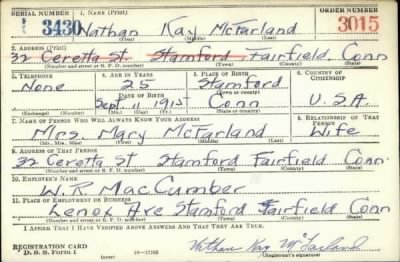 SERIAL NUMBER 1. NAME (Print) ORDER NUMBER
3430 Nathan Kay McFarland 3015
(First) (Middle) (Last)
2. ADDRESS (Print)
32 Ceretta St. Stamford Fairfield Conn
(Number and street or R. F. D. number) (Town) (County) (State)
3. TELEPHONE 4. AGE IN YEARS 5. PLACE OF BIRTH 6. COUNTRY OF CITIZENSHIP
None 25 Stamford
DATE OF BIRTH (Town or county)
Sept. 11 1915 Conn U.S.A.
(Exchange) (Number) (Mo.) (Day) (Yr.) (State or country)
7. NAME OF PERSON WHO WILL ALWAYS KNOW YOUR ADDRESS 8. RELATIONSHIP OF THAT PERSON
Mrs. Mary McFarland Wife
(Mr., Mrs., Miss) (First) (Middle) (Last)
9. ADDRESS OF THAT PERSON
32 Ceretta St Stamford Fairfield Conn
(Number and street or R. F. D. number) (Town) (County) (State)
10. EMPLOYER'S NAME
W. R. MacCumber
11. PLACE OF EMPLOYMENT OR BUSINESS
Lenox Ave Stamford Fairfield Conn
(Number and street or R. F. D. number) (Town) (County) (State)
I AFFIRM THAT I HAVE VERIFIED ABOVE ANSWERS AND THAT THEY ARE TRUE.
REGISTRATION CARD
D. S. S. Form 1 Nathan Kay McFarland
(Registrant's signature)